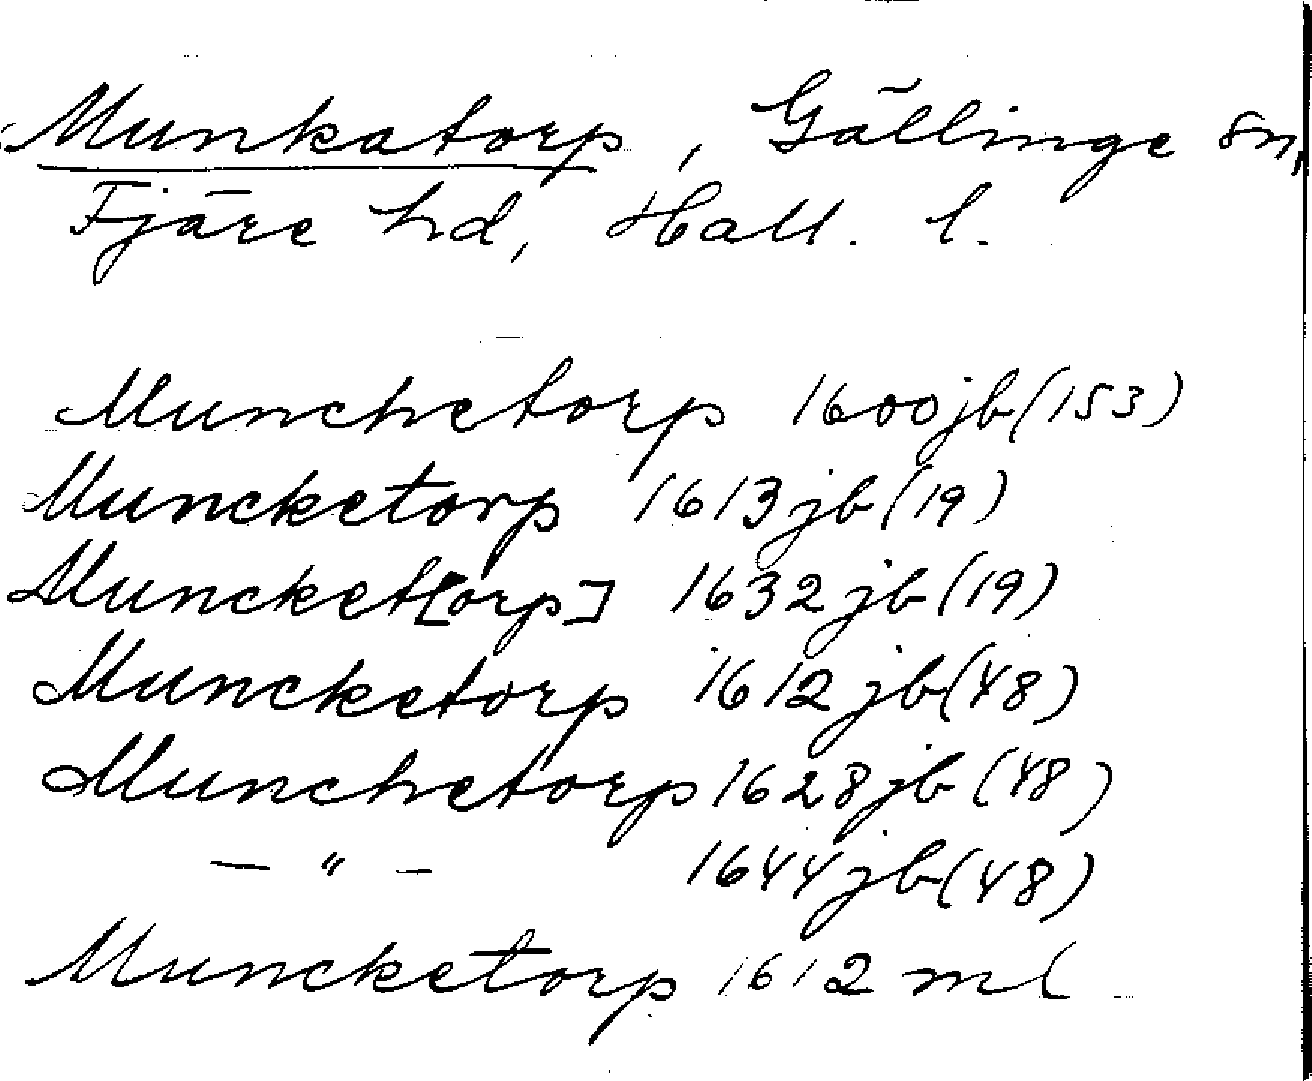 Munkatorp, Gällinge sn,
Fjäre hd, Hall. l.
Munchetorp 1600 jb (153)
Muncketorp 1613 jb (19)
Muncket[orp] 1632 jb (19)
Muncketorp 1612 jb (48)
Munchetorp 1628 jb (48)
— " — 1644 jb (48)
Muncketorp 1612 ml